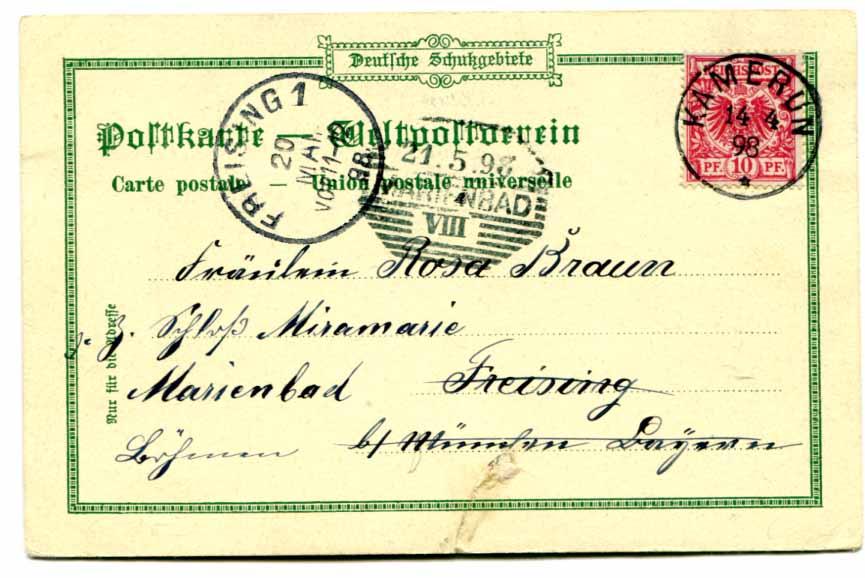 Deutsche Schutzgebiete
Postkarte — Weltpostverein
Carte postale — Union postale universelle
REICHSPOST
PF 10 PF
KAMERUN
14 4
98
*
FREISING 1
20
MAI
VOR 11-12
98
21.5.98
MARIENBAD
VIII
Fräulein Rosa Braun
z. Z. Schloß Miramarie
Marienbad Freising
Böhmen b/ München Bayern
Nur für die Adresse